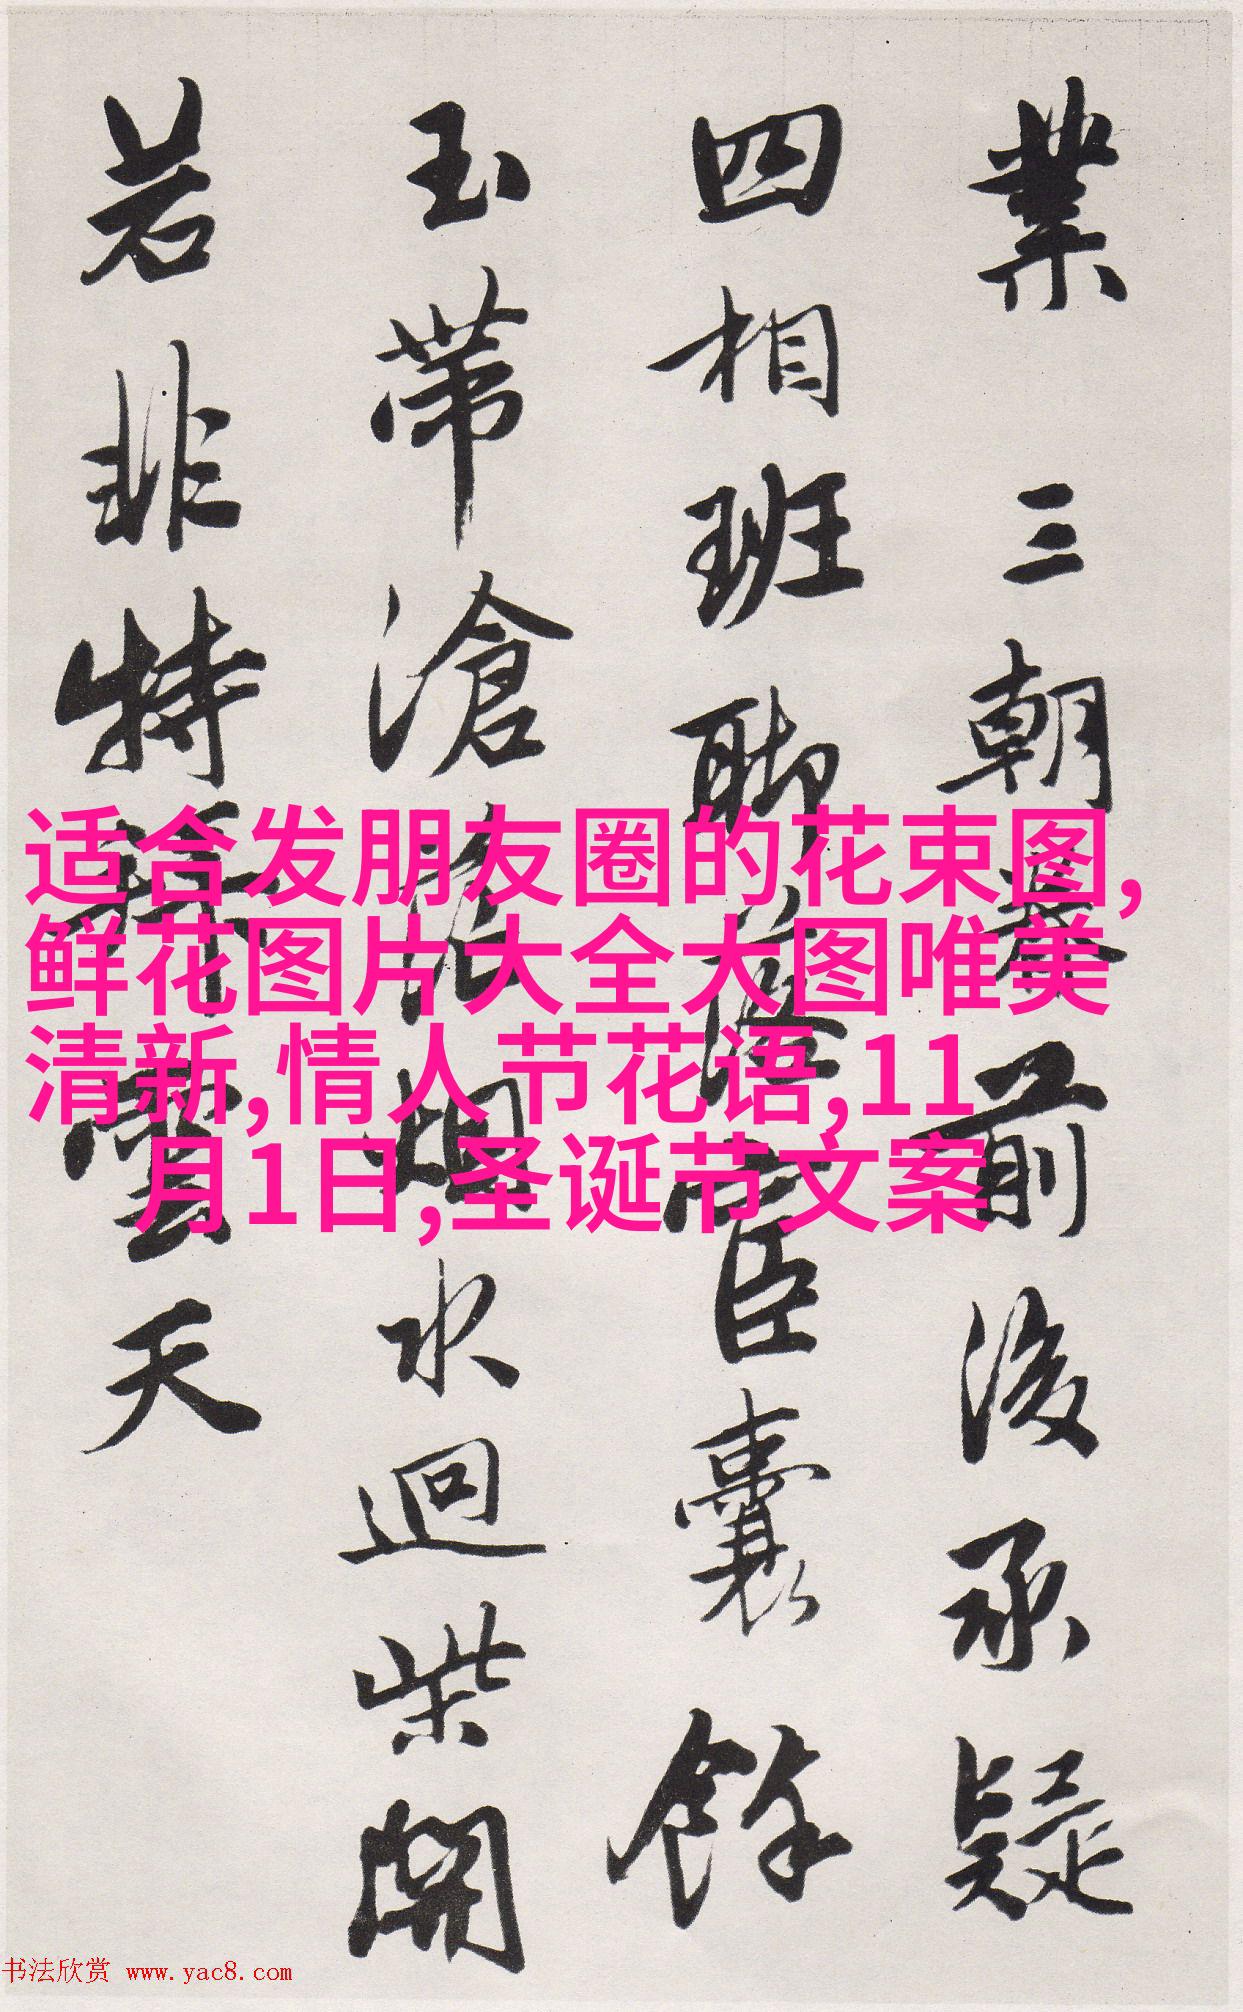 業三朝前後承疑
四相班聊臣囊餘
玉帶滄浪烟水迥柴開
若非特雲天
适合发朋友圈的花束图,
鲜花图片大全大图唯美
清新,情人节花语,11
月1日,圣诞节文案
书法欣赏 www.yac8.com